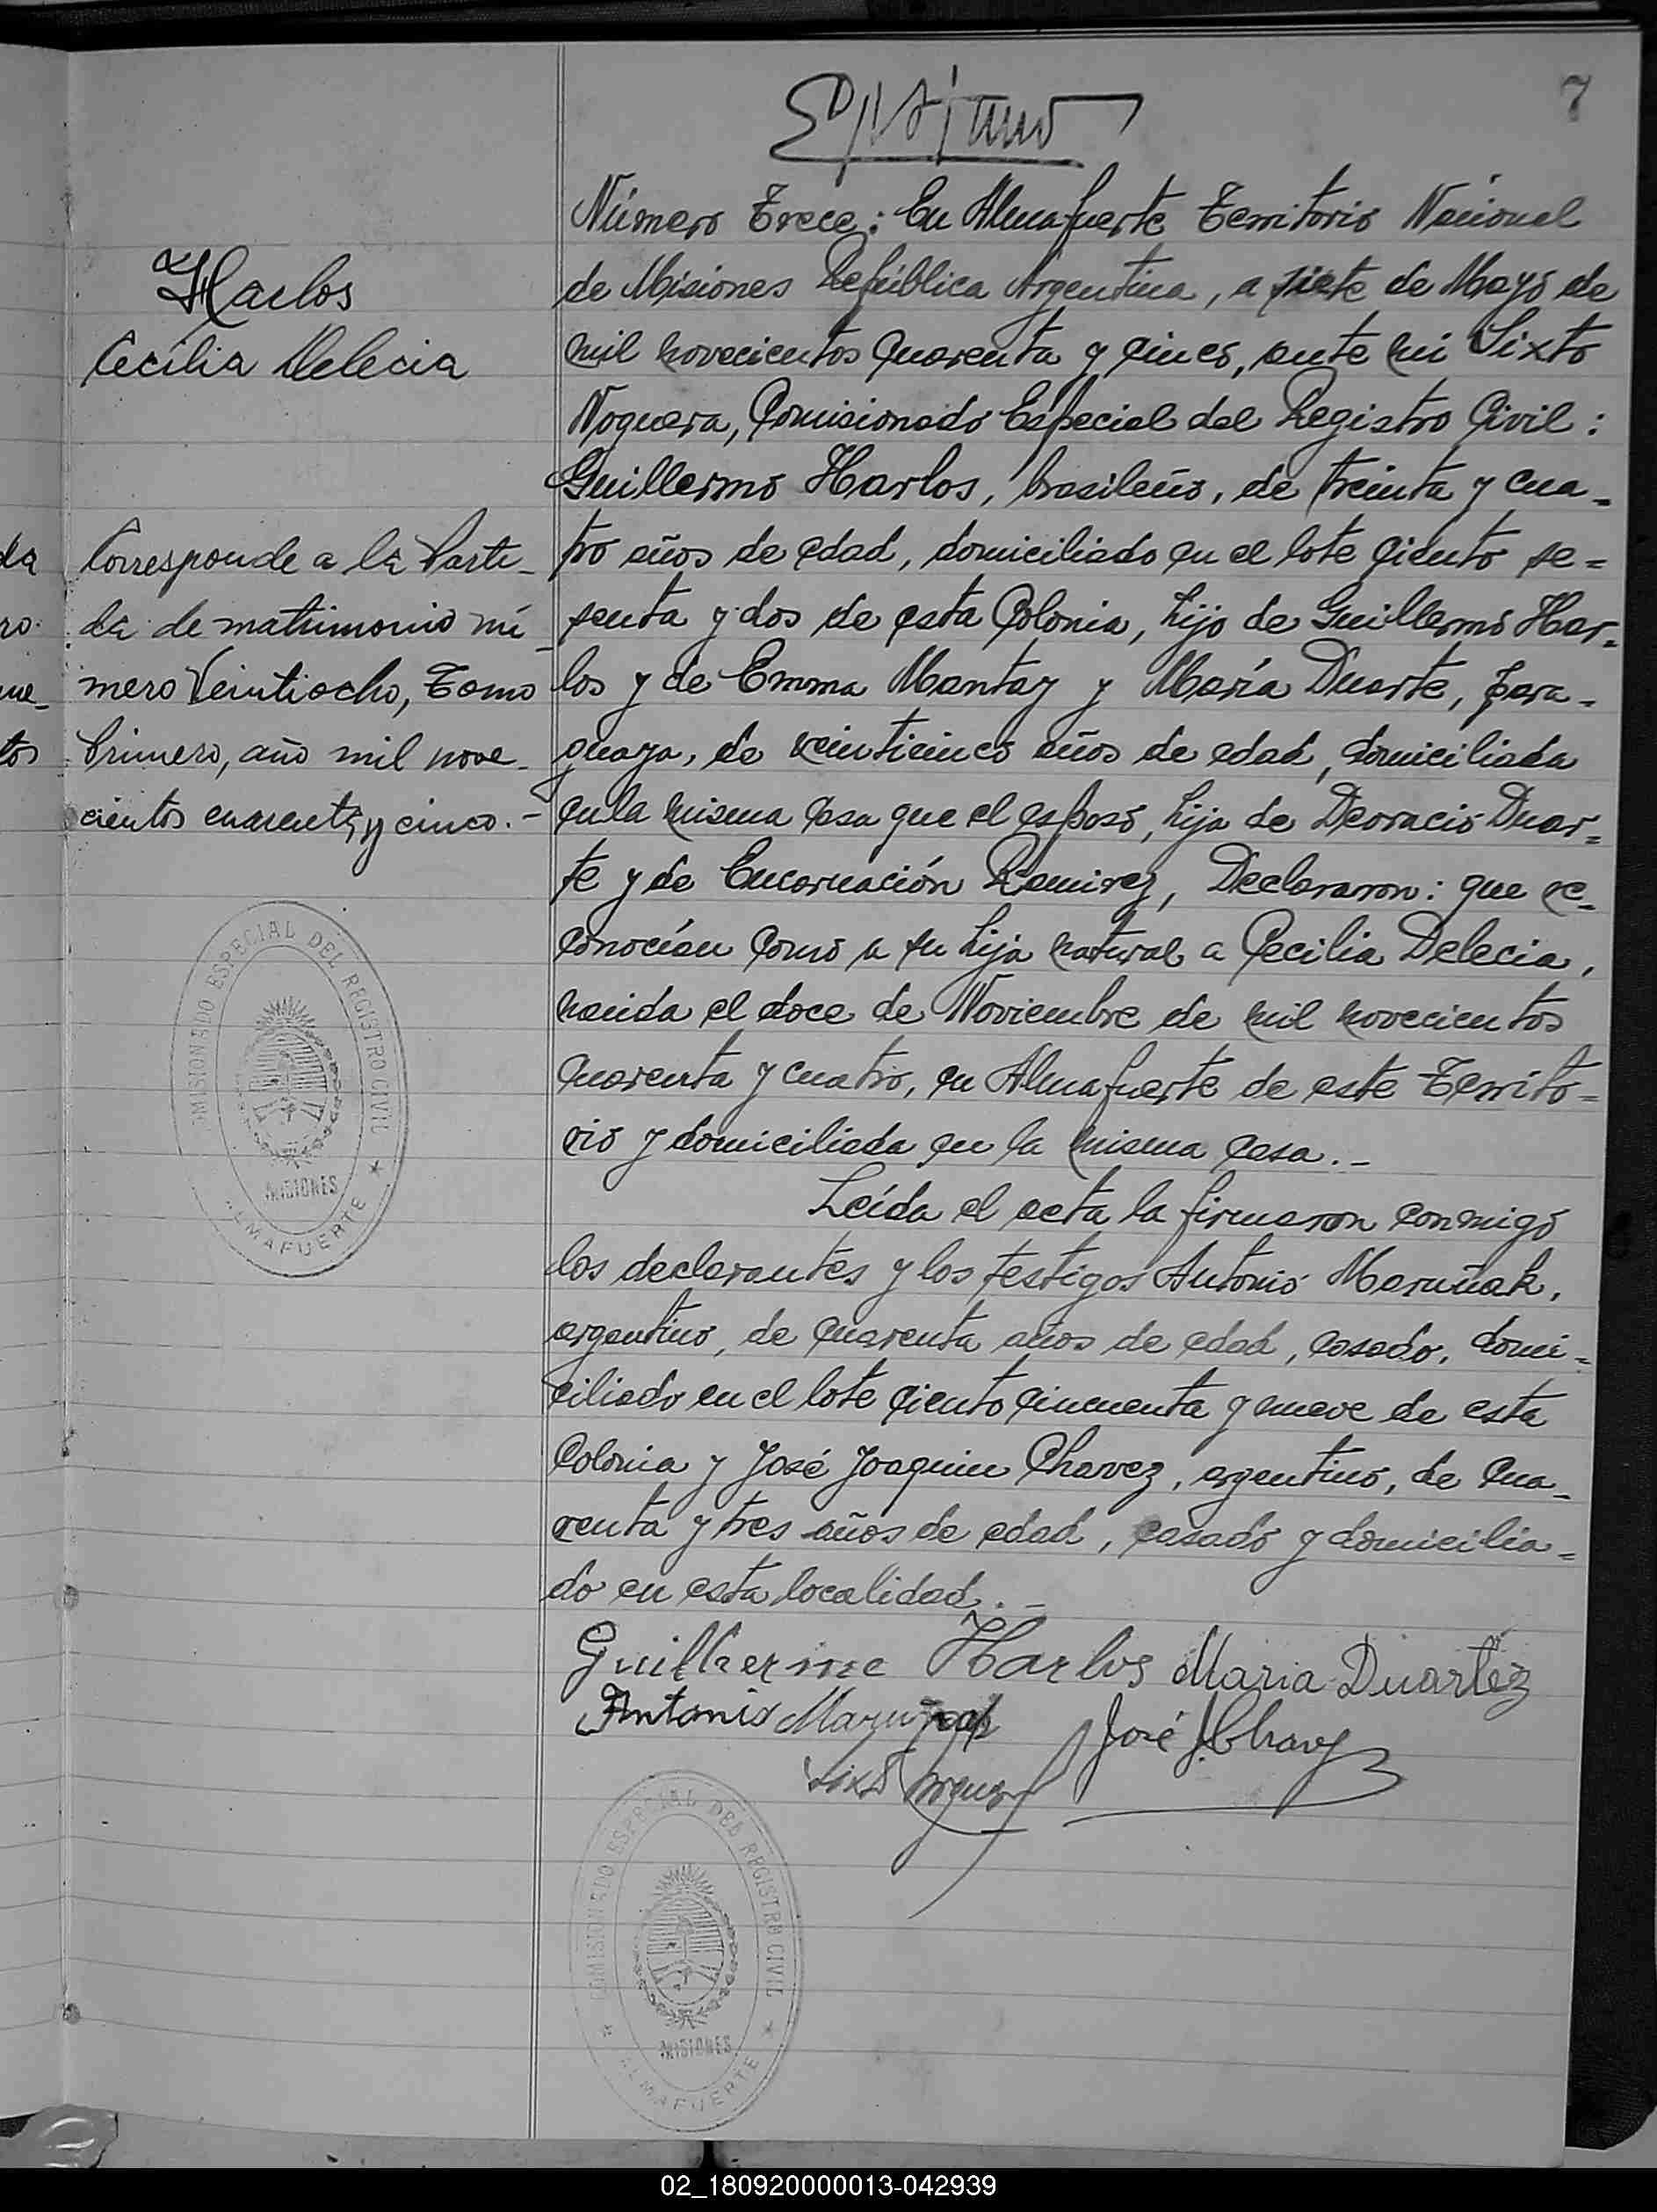 7
Harlos
Cecilia Delecia
Corresponde a la Parti-
da de matrimonio nú-
mero Veintiocho, Tomo
Primero, año mil nove-
cientos cuarenta y cinco.-
COMISIONADO ESPECIAL DEL REGISTRO CIVIL
MISIONES
ALMAFUERTE
Número Trece: En Almafuerte Territorio Nacional
de Misiones República Argentina, a siete de Mayo de
mil novecientos cuarenta y cinco, ante mi Sixto
Noguera, Comisionado Especial del Registro Civil:
Guillermo Harlos, brasileño, de treinta y cua-
tro años de edad, domiciliado en el lote ciento se=
senta y dos de esta Colonia, hijo de Guillermo Har-
los y de Emma Mantay y María Duarte, para-
guaya, de veinticinco años de edad, domiciliada
en la misma casa que el esposo, hija de Deoracio Duar=
te y de Encarnación Ramirez, Declararon: que re-
conocían como a su hija natural a Cecilia Delecia,
nacida el doce de Noviembre de mil novecientos
cuarenta y cuatro, en Almafuerte de este Territo=
rio y domiciliada en la misma casa.-
Leída el acta la firmaron conmigo
los declarantes y los testigos Antonio Maruñak,
argentino, de cuarenta años de edad, casado, domi-
ciliado en el lote ciento cincuenta y nueve de esta
Colonia y José Joaquin Chavez, argentino, de cua-
renta y tres años de edad, casado y domicilia=
do en esta localidad.-
Guilherme Harlos Maria Duartez
Antonio Maruñak José J. Chavez
Sixto Noguera
COMISIONADO ESPECIAL DEL REGISTRO CIVIL
MISIONES
ALMAFUERTE
02_180920000013-042939